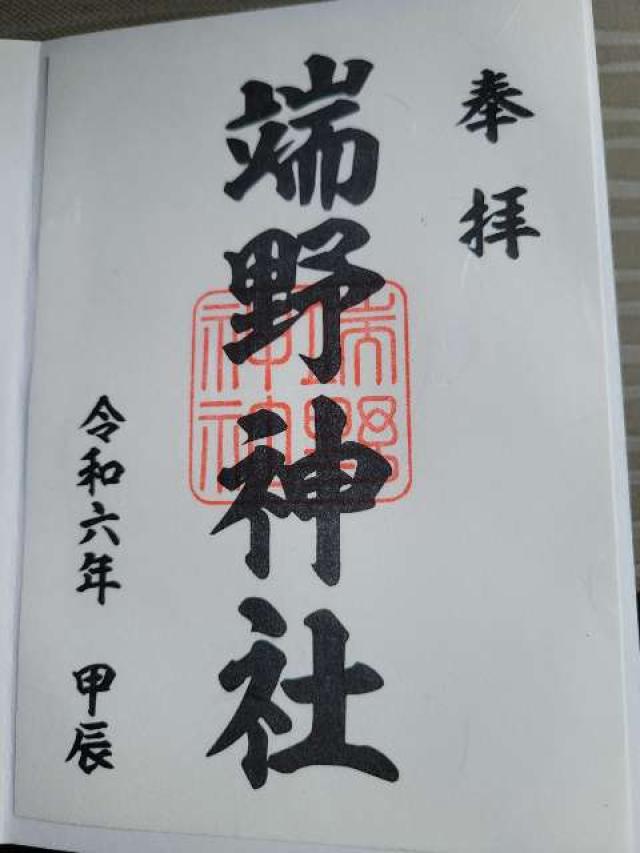 奉拝
端野神社
端野神社
令和六年 甲辰